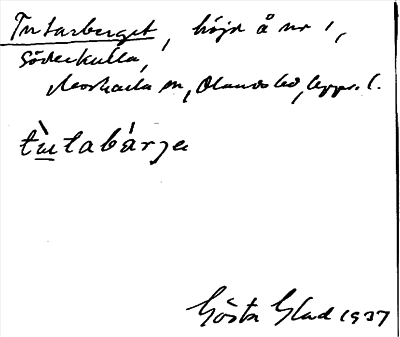 Tutarberget, höjd å nr 1,
Söderkulla,
Morkarla sn, Olands hd, Upps. l.
tùtabárja
Gösta Glad 1937